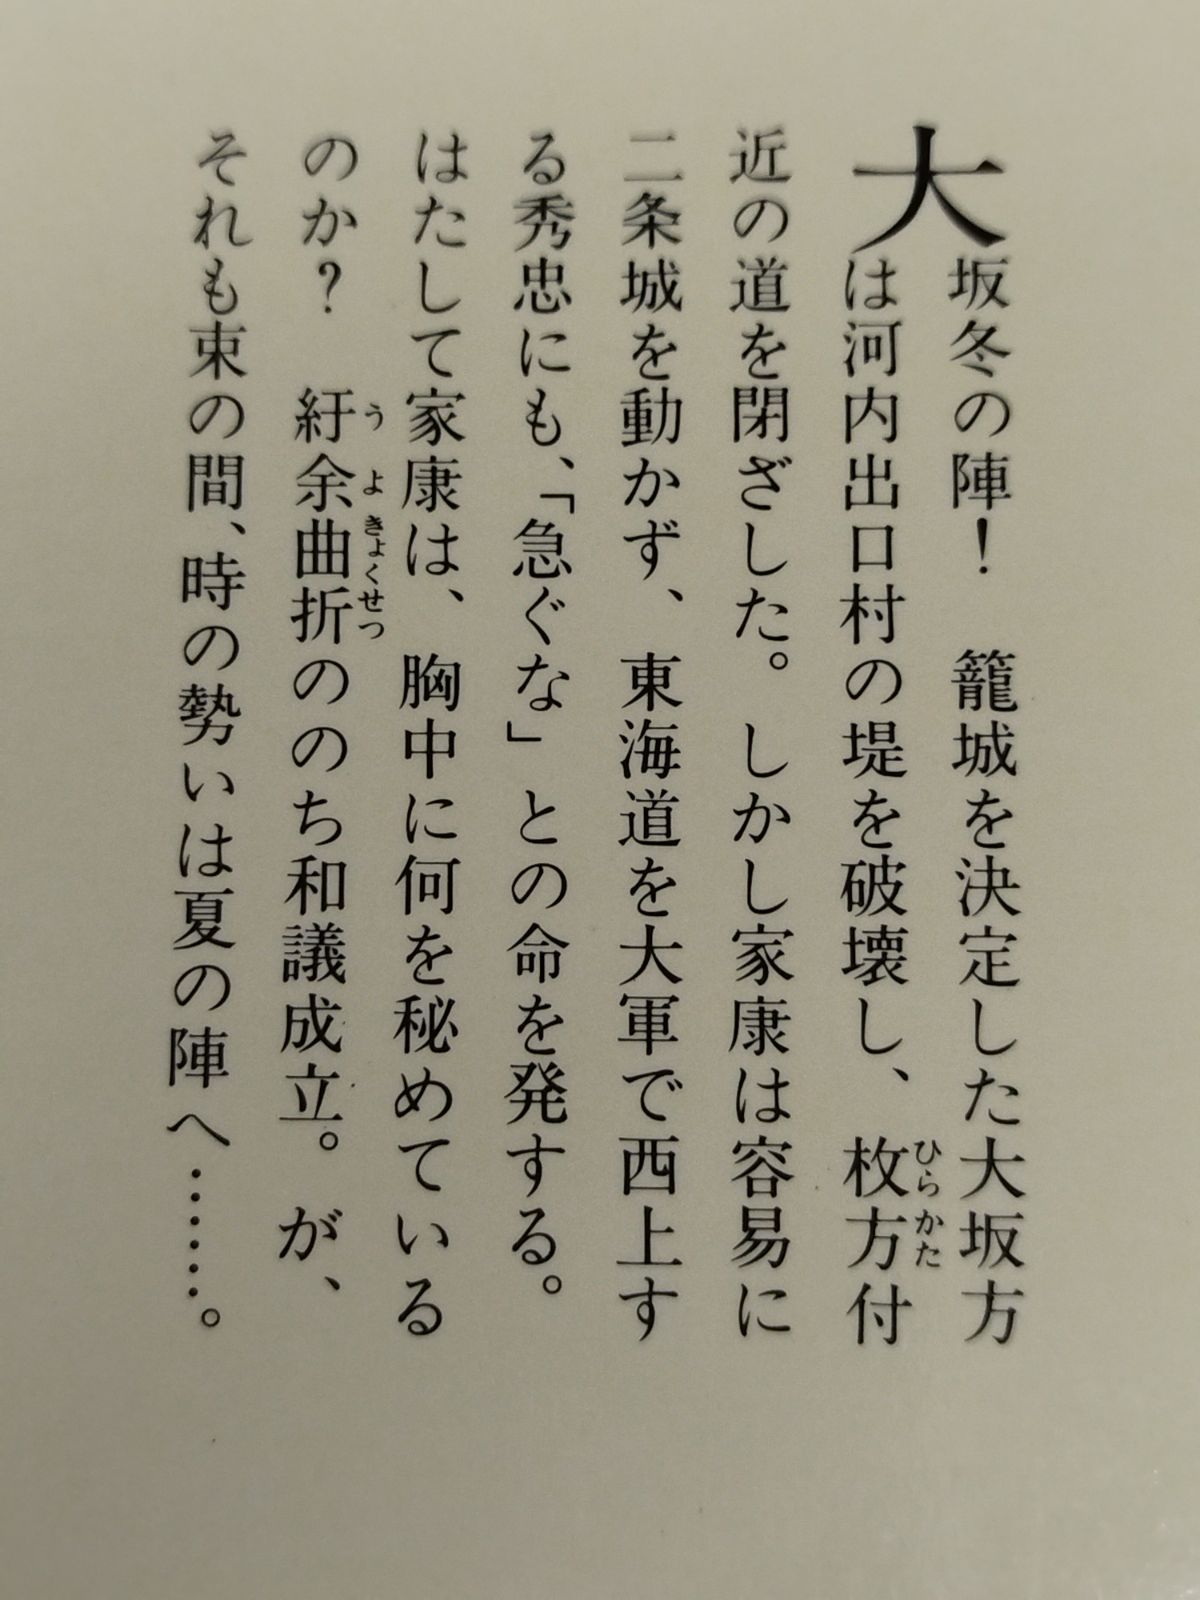 大坂冬の陣！　籠城を決定した大坂方
は河内出口村の堤を破壊し、枚方付
近の道を閉ざした。しかし家康は容易に
二条城を動かず、東海道を大軍で西上す
る秀忠にも、「急ぐな」との命を発する。
はたして家康は、胸中に何を秘めている
のか？　紆余曲折ののち和議成立。が、
それも束の間、時の勢いは夏の陣へ……。
ひらかた
うよきょくせつ